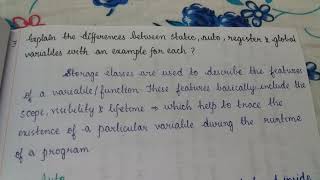 Explain the differences between static, auto, register & global
variables with an example for each?
Storage classes are used to describe the features
of a variable/function. These features basically include the
scope, visibility & lifetime → which help to trace the
existence of a particular variable during the runtime
of a program
Auto